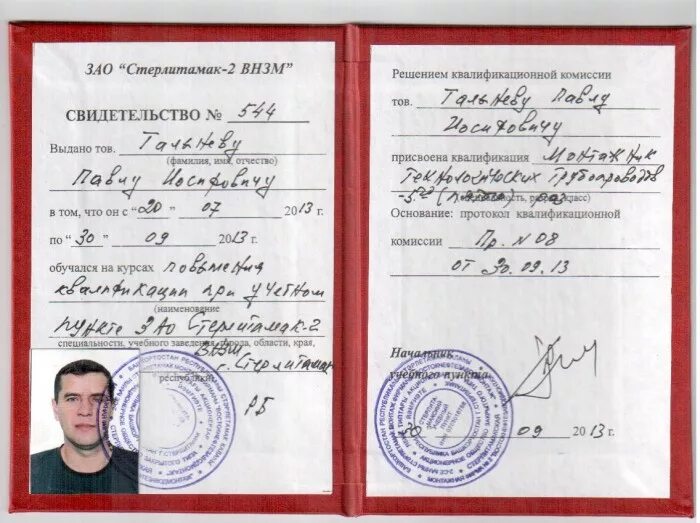 ЗАО “Стерлитамак-2 ВНЗМ”
СВИДЕТЕЛЬСТВО № 544
Выдано тов. Талыневу
(фамилия, имя, отчество)
Павлу Иосифовичу
в том, что он с “20” 07 2013 г.
по “30” 09 2013 г.
обучался на курсах повышения
квалификации при учебном
(наименование
пункте ЗАО Стерлитамак-2
специальности, учебного заведения, города, области, края,
ВНЗМ г. Стерлитамак
республики)
РБ
Решением квалификационной комиссии
тов. Талыневу Павлу
Иосифовичу
присвоена квалификация Монтажник
технологических трубопроводов
Основание: протокол квалификационной
комиссии Пр. N 08
от 30.09.13
Начальник
учебного пункта
30 09 2013 г.